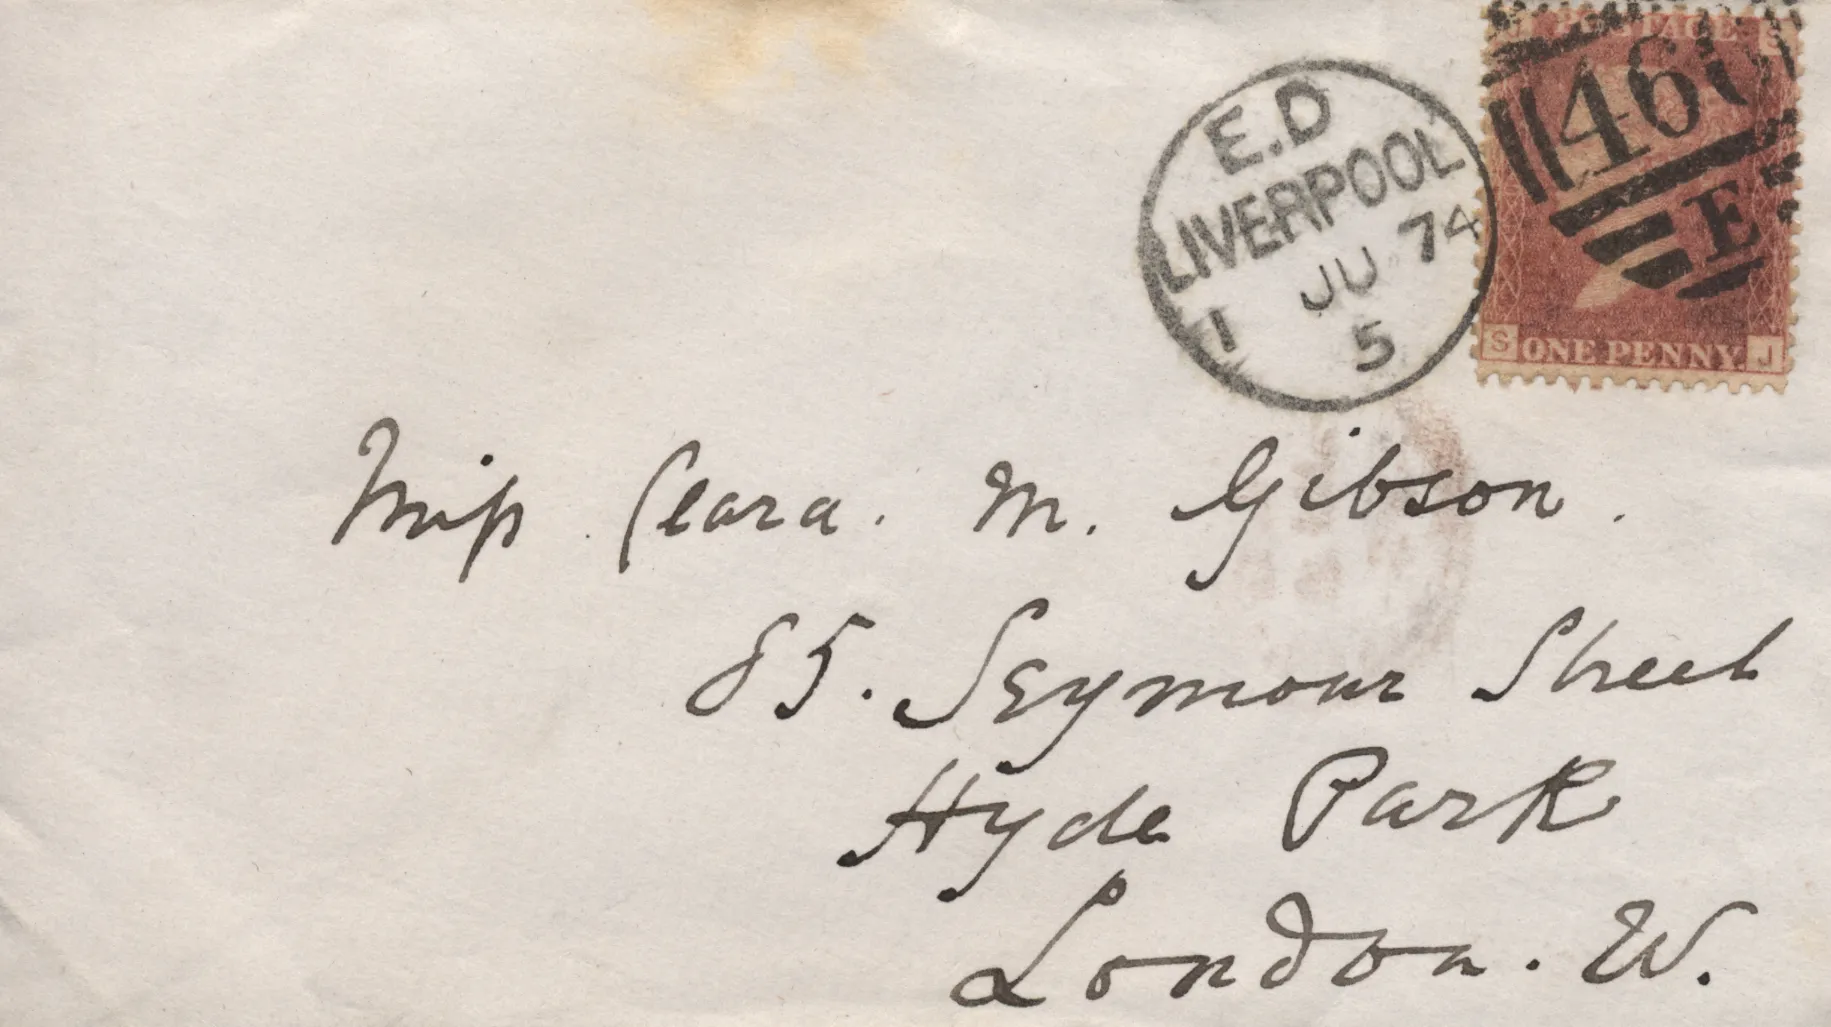 E.D
LIVERPOOL
JU 74
1 5
POSTAGE
46
E
S ONE PENNY. J
Miss Clara. M. Gibson.
85. Seymour Street
Hyde Park
London. W.